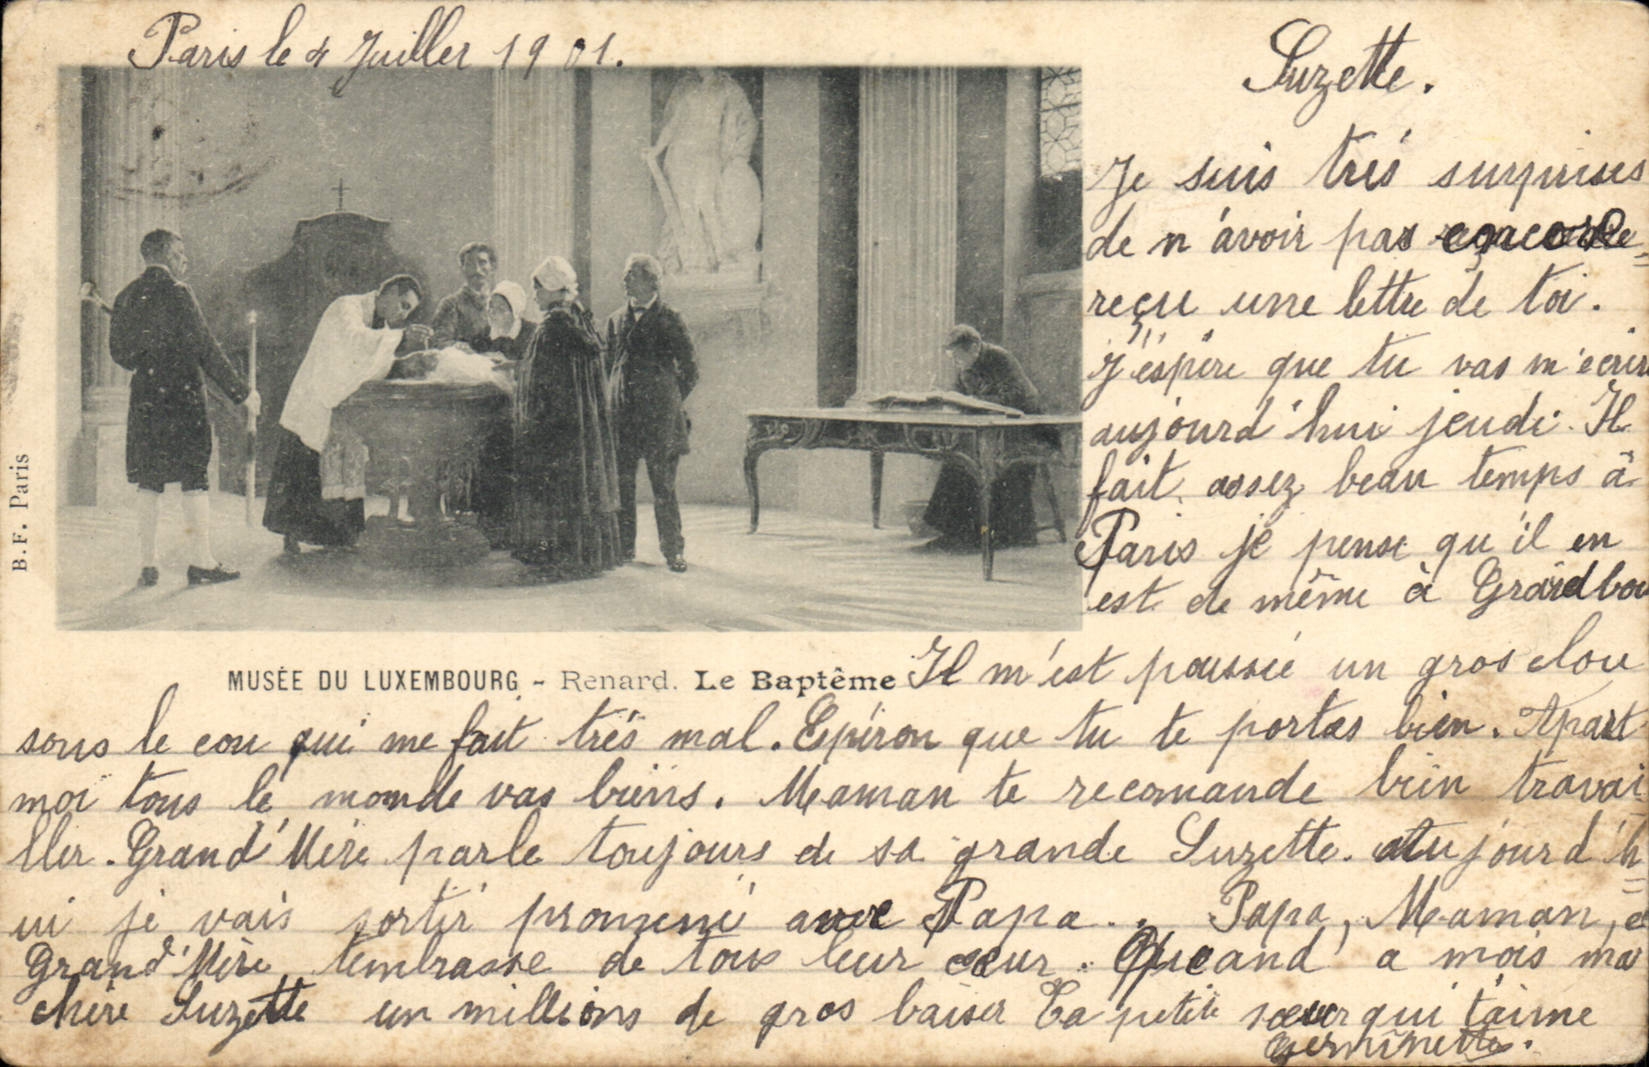 Paris le 4 Juiller 1901.
Suzette.
Je suis trés surprises
de n'avoir pas encore
reçu une lettre de toi.
J'éspère que tu vas m'ecrire
aujourd'hui jeudi. Il
fait assez beau temps à
Paris je pense qu'il en
est de même à Grandbou
B.F. Paris
MUSÉE DU LUXEMBOURG - Renard. Le Baptême
Il m'est poussée un gros clou
sous le cou qui me fait trés mal. Epéron que tu te portes bien. Apart
moi tous le monde vas biens. Maman te recomande bien travai-
ller. Grand'Mère parle toujours de sa grande Suzette. aujourd'h=
ui je vais sortir promené avec Papa. Papa, Maman, e
Grand'Mère t'embrasse de tous leur cœur. Quand a mois ma
chère Suzette un millions de gros baiser Ta petite sœur qui t'aime
Germinette.